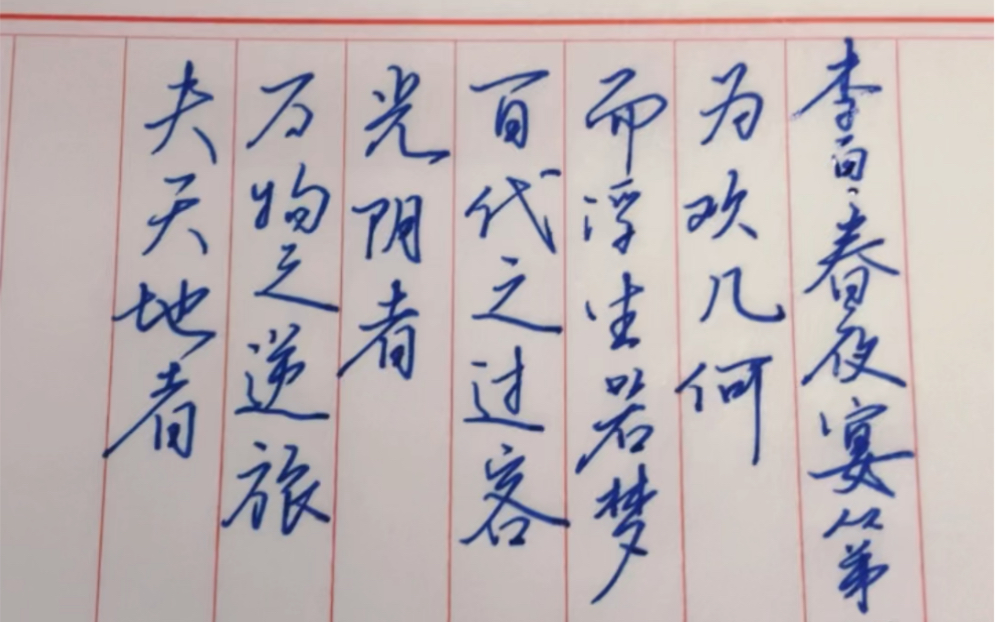 夫天地者
万物之逆旅
光阴者
百代之过客
而浮生若梦
为欢几何
李白·春夜宴从弟